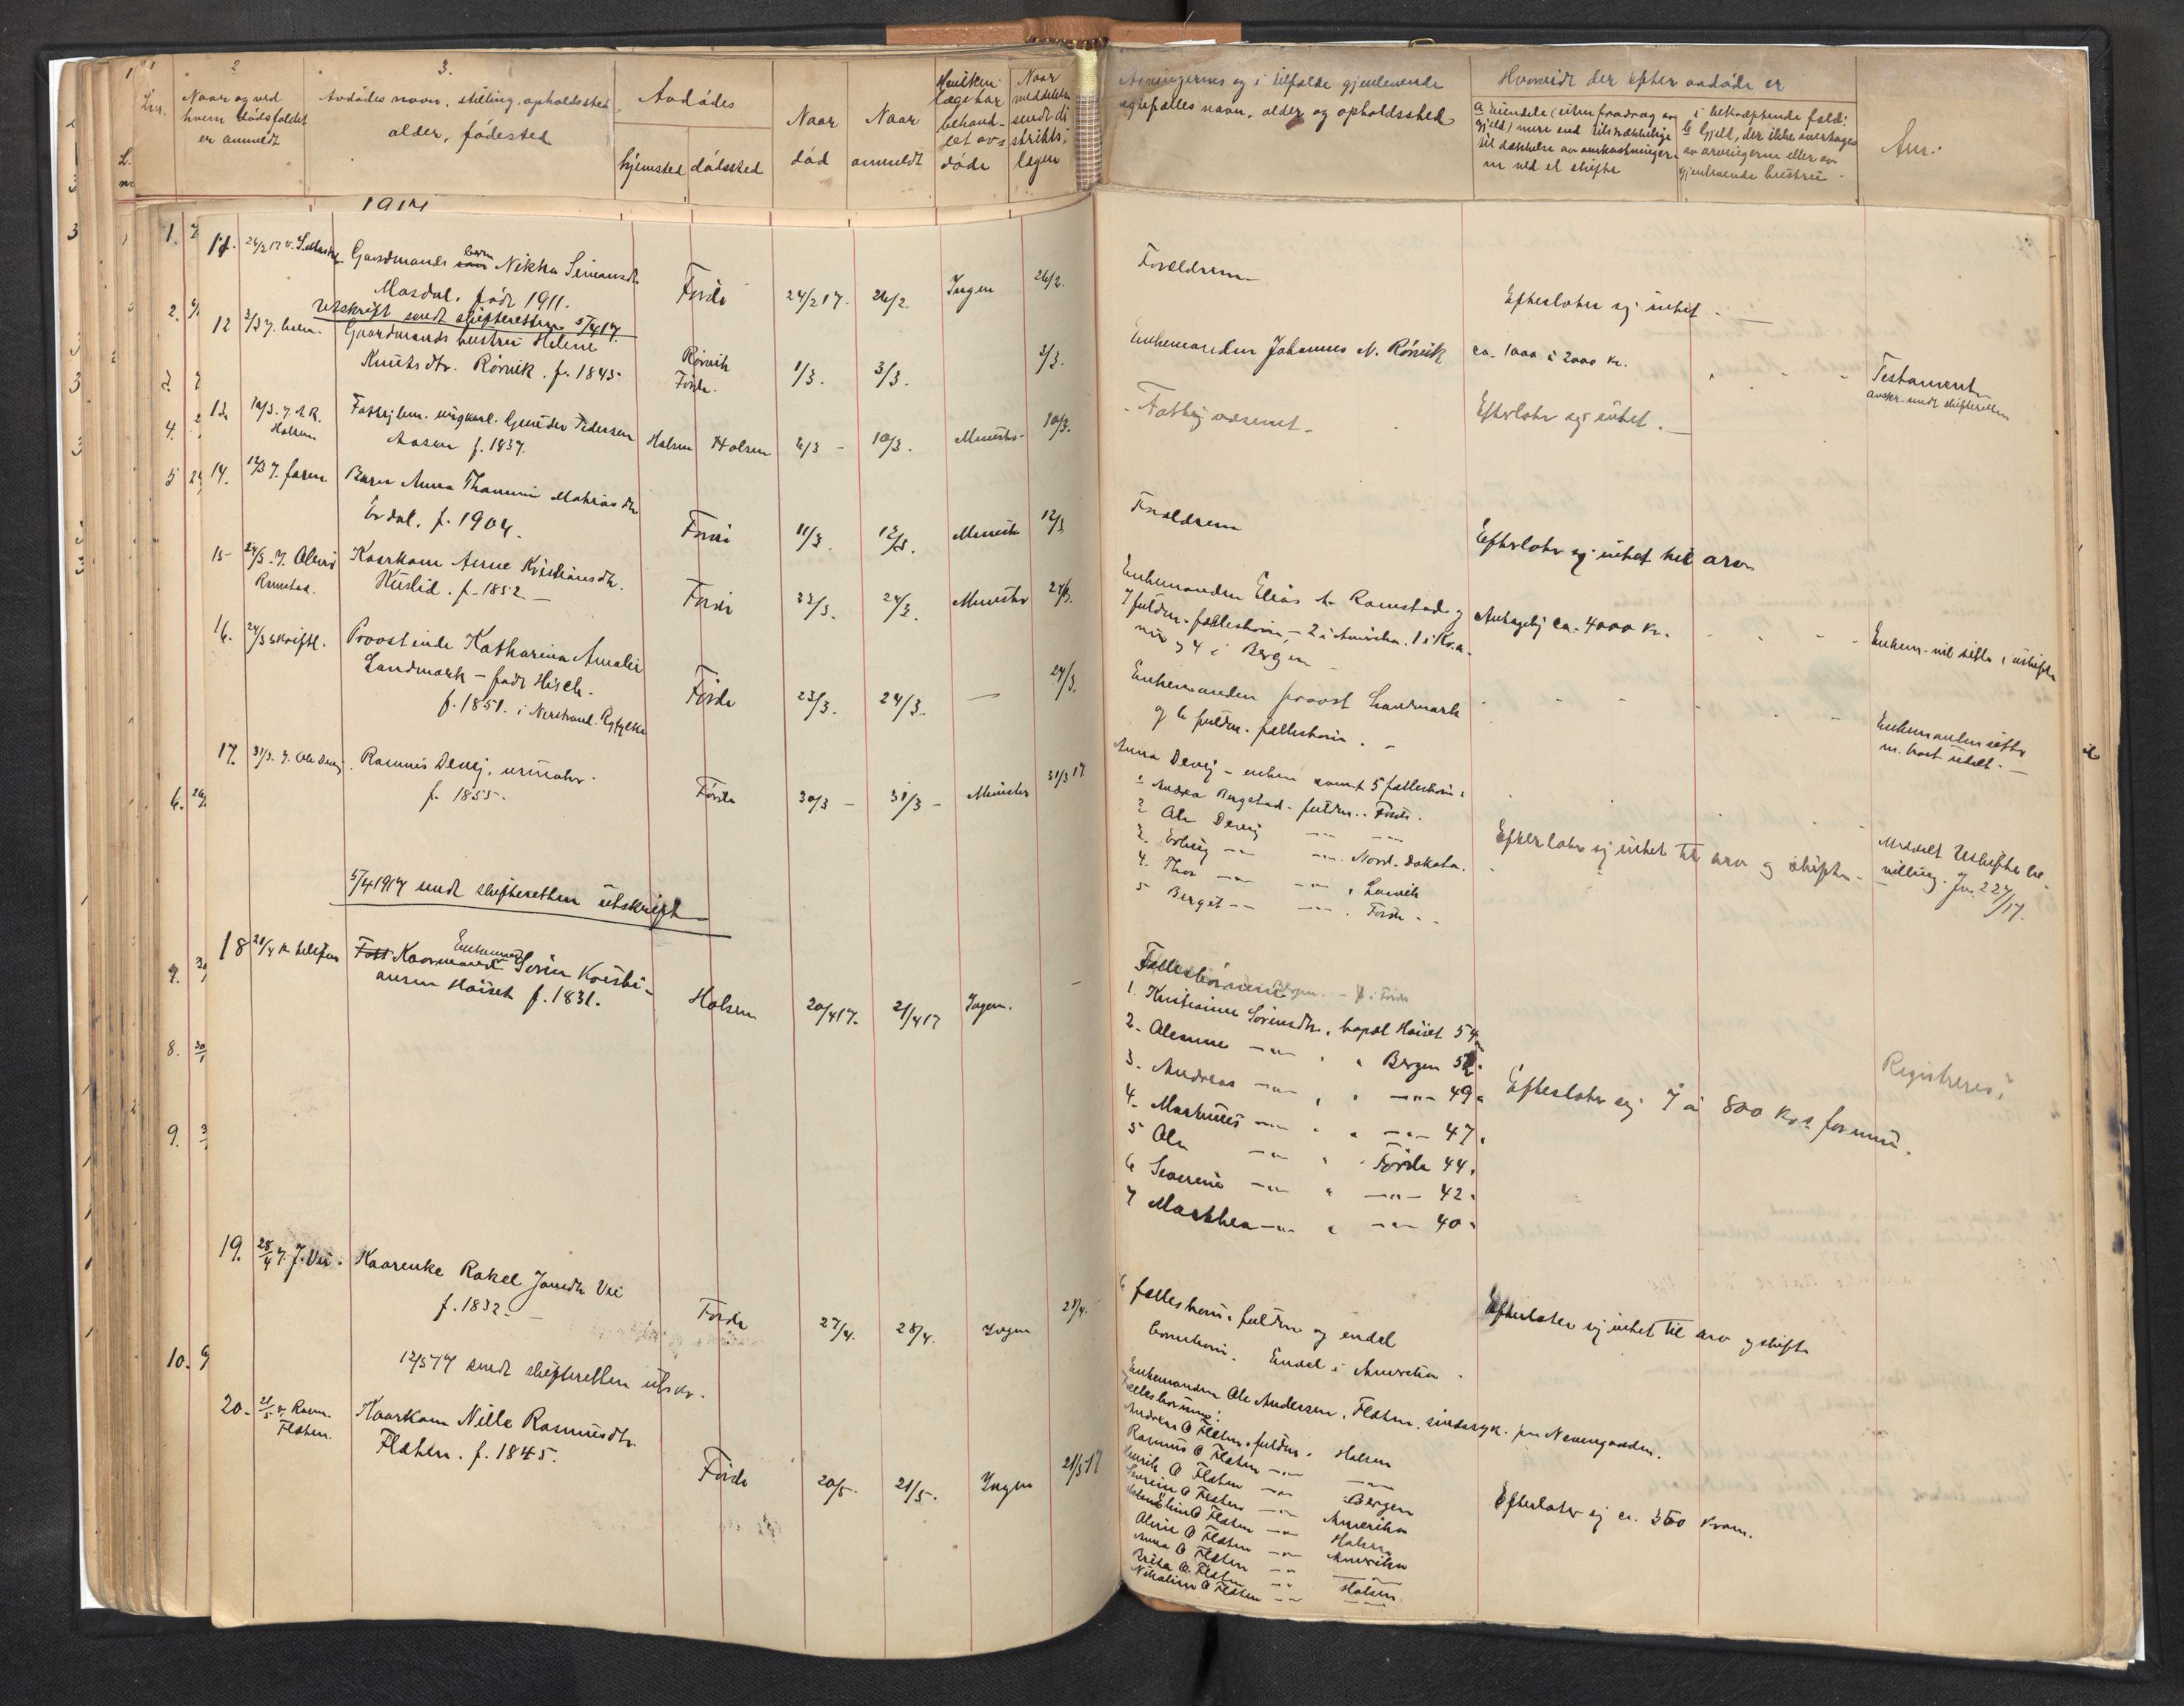 1
2
3.
Lnr.
Naar og ved
hvem dödsfaldet
er anmeldt
Avdödes navn, stilling, opholdssted
alder, födested
Avdödes
hjemsted dödssted
Naar
död
Naar
anmeldt
Hvilken
læge har
behand-
let av-
döde
Naar
meddelelse
sendt di
strikts-
lægen
Arvingernes og i tilfælde gjenlevende
egtefælles navn, alder og opholdssted
Hvorvidt der efter avdöde er
a Eiendele (uten fradrag av
gjeld) mere end tilstrækkelige
til dækkelse av omkostninger-
ne ved et skifte
i bekræftende fald:
b Gjeld, der ikke overtages
av arvingerne eller av
gjenlevende hustru
Anm.
1917
11. 24/2 17 v. S. Masdal Gaardmands barn Nikka Simonsdtr
Masdal. födt 1911. Förde 24/2 17. 26/2. Ingen 26/2. Forældrene Efterlater sig intet
Utskrift sendt skifteretten 5/4 17.
12 3/3 17. Gaardmands hustru Helene
Knutsdtr. Rörvik. f. 1845. Rörvik
Förde. 1/3. 3/3. 3/3. Enkemanden Johannes N. Rörvik ca. 1000 à 2000 kr. Testament
avskr. sendt skifteretten
13. 10/3. 7. A. R.
Holsen Fattiglem. ungkarl. Gunder Pedersen
Aasen f. 1837. Holsen Holsen 6/3 10/3. Munster 10/3. Fattigvæsenet. Efterlater sig intet.
14. 12/3 7. faren Barn Anna Thomine Mathiasdtr
Erdal. f. 1904. Förde 11/3. 12/3. Munster 12/3 Forældrene Efterlater sig intet til arv
15 24/3. 7. Elias
Ramstad. Kaarkone Anne Kristiansdtr.
Huslid. f. 1852 Förde 23/3. 24/3. Munster 24/3. Enkemanden Elias A. Ramstad og
7 fuldm. fællesbörn, - 2 i Amerika. 1 i Kr.a-
nia og 4 i Bergen Antagelig ca. 4000 kr. Enkem. vil sitte i uskifte
16. 24/3 skriftl. Provstinde Katharina Amalie
Landmark - födt Hisch.
f. 1851. i Nerstrand. Ryfylke Förde 23/3. 24/3. 24/3. Enkemanden provst Landmark
og 6 fuldm. fællesbörn. Enkemanden sitter
m. boet udelt.
17. 31/3. 7. Ole Devig. Rasmus Devig, urmaker.
f. 1855. Förde 30/3 - 31/3 - Munster 31/3 17 Anna Devig - enken samt 5 fællesbörn:
1 Andrea Bergstad - fuldm. Förde.
2 Ole Devig
3. Erling Nord-Dakota.
4. Thor Larvik
5 Bergit Förde Efterlater sig intet til arv og skifte. Meddelt Uskifte be-
villing. Jn. 224/17.
5/4 1917 sendt skifteretten utskrift
18 21/4 pr telefon Fatt Kaarmand Enkemand Sören Kristi-
ansen Höiset f. 1831. Holsen 20/4 17. 21/4 17 Ingen. Fællesbörnene Bergen. - i Förde
1. Kristianne Sörensdtr, bopæl Höiset 54
2. Alesanne Bergen 52.
3. Andreas 49
4. Markuus 47.
5 Ole Förde 44.
6 Severine 42.
7 Marthea 40 Efterlater sig 7 à 800 Kr.s formue. Registreres?
19. 28/4 7. J. Vie. Kaarenke Rakel Jonsdtr Vie
f. 1832 Förde 27/4. 28/4. Ingen 28/4. 6 fællesbörn. fuldm og endel
barnebörn. Endel i Amerika. Efterlater sig intet til arv og skifte
12/5 17 sendt skifteretten utskr.
20. 21/5 v. Rasm.
Flaten. Kaarkone Nille Rasmusdtr.
Flaten. f. 1845. Förde 20/5. 21/5. Ingen 21/5 17 Enkemanden Ole Andersen, Flaten. sindssyk. paa Neuengaarden.
Fællesbörnene:
Andreas O Flaten, fuldm. Holsen
Rasmus O Flaten
Henrik O Flaten Bergen
Severin O Flaten Amerika
O Flaten Holsen
Oline O Flaten Amerika
Anna O Flaten
Brita O. Flaten Holsen
Nikoline O Flaten Efterlater sig ca. 350 kron.